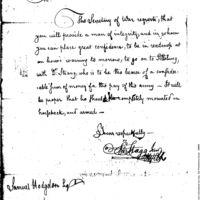 The Secretary of War requests, that
you will provide a man of integrity, and in whom
you can place great confidence, to be in readiness at
an hours warning to morrow, to go on to Pittsburg,
with Dr. Strong, who is to be the bearer of a confide-
rable sum of money for the pay of the army — It will
be proper that he should be compleatly mounted in
horseback, and armed —
Yours respectfully
Jno Stagg Junr
Samuel Hodgdon Esqr